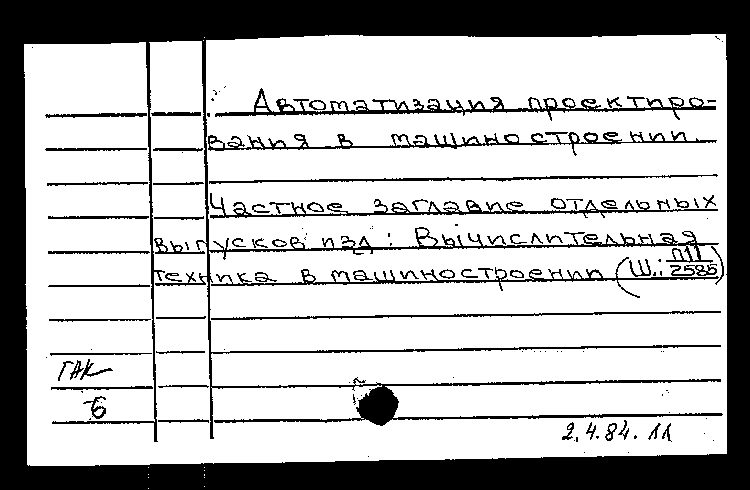 Автоматизация проектиро-
вания в машиностроении.
Частное заглавие отдельных
выпусков изд: Вычислительная
техника в машиностроении (Ш.: П11/2585)
ГАК
Б
2.4.84. лл